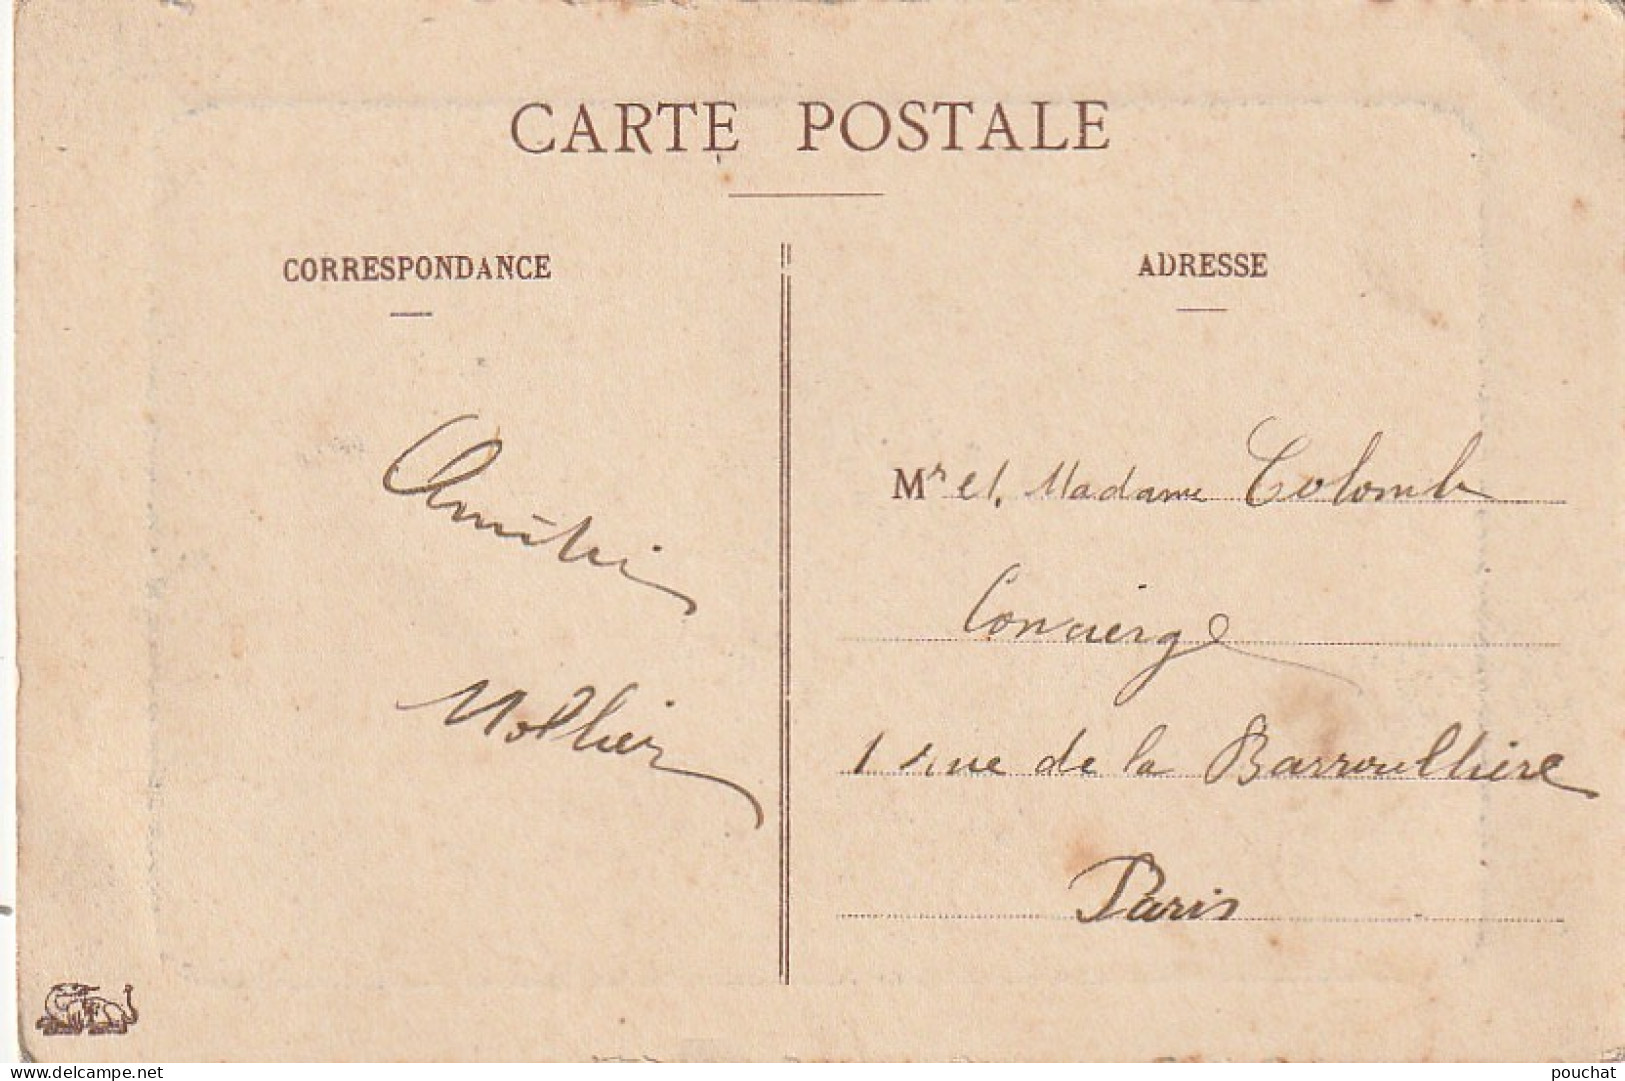 CARTE POSTALE
CORRESPONDANCE
ADRESSE
Amitié
Mollier
Mr et Madame Colomb
Concierge
1 rue de la Barroullière
Paris
www.delcampe.net
pouchat